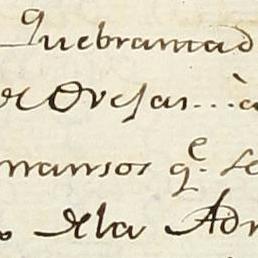 Quebrantad
de Ovejas...à
mansos q.e se
dela Adm